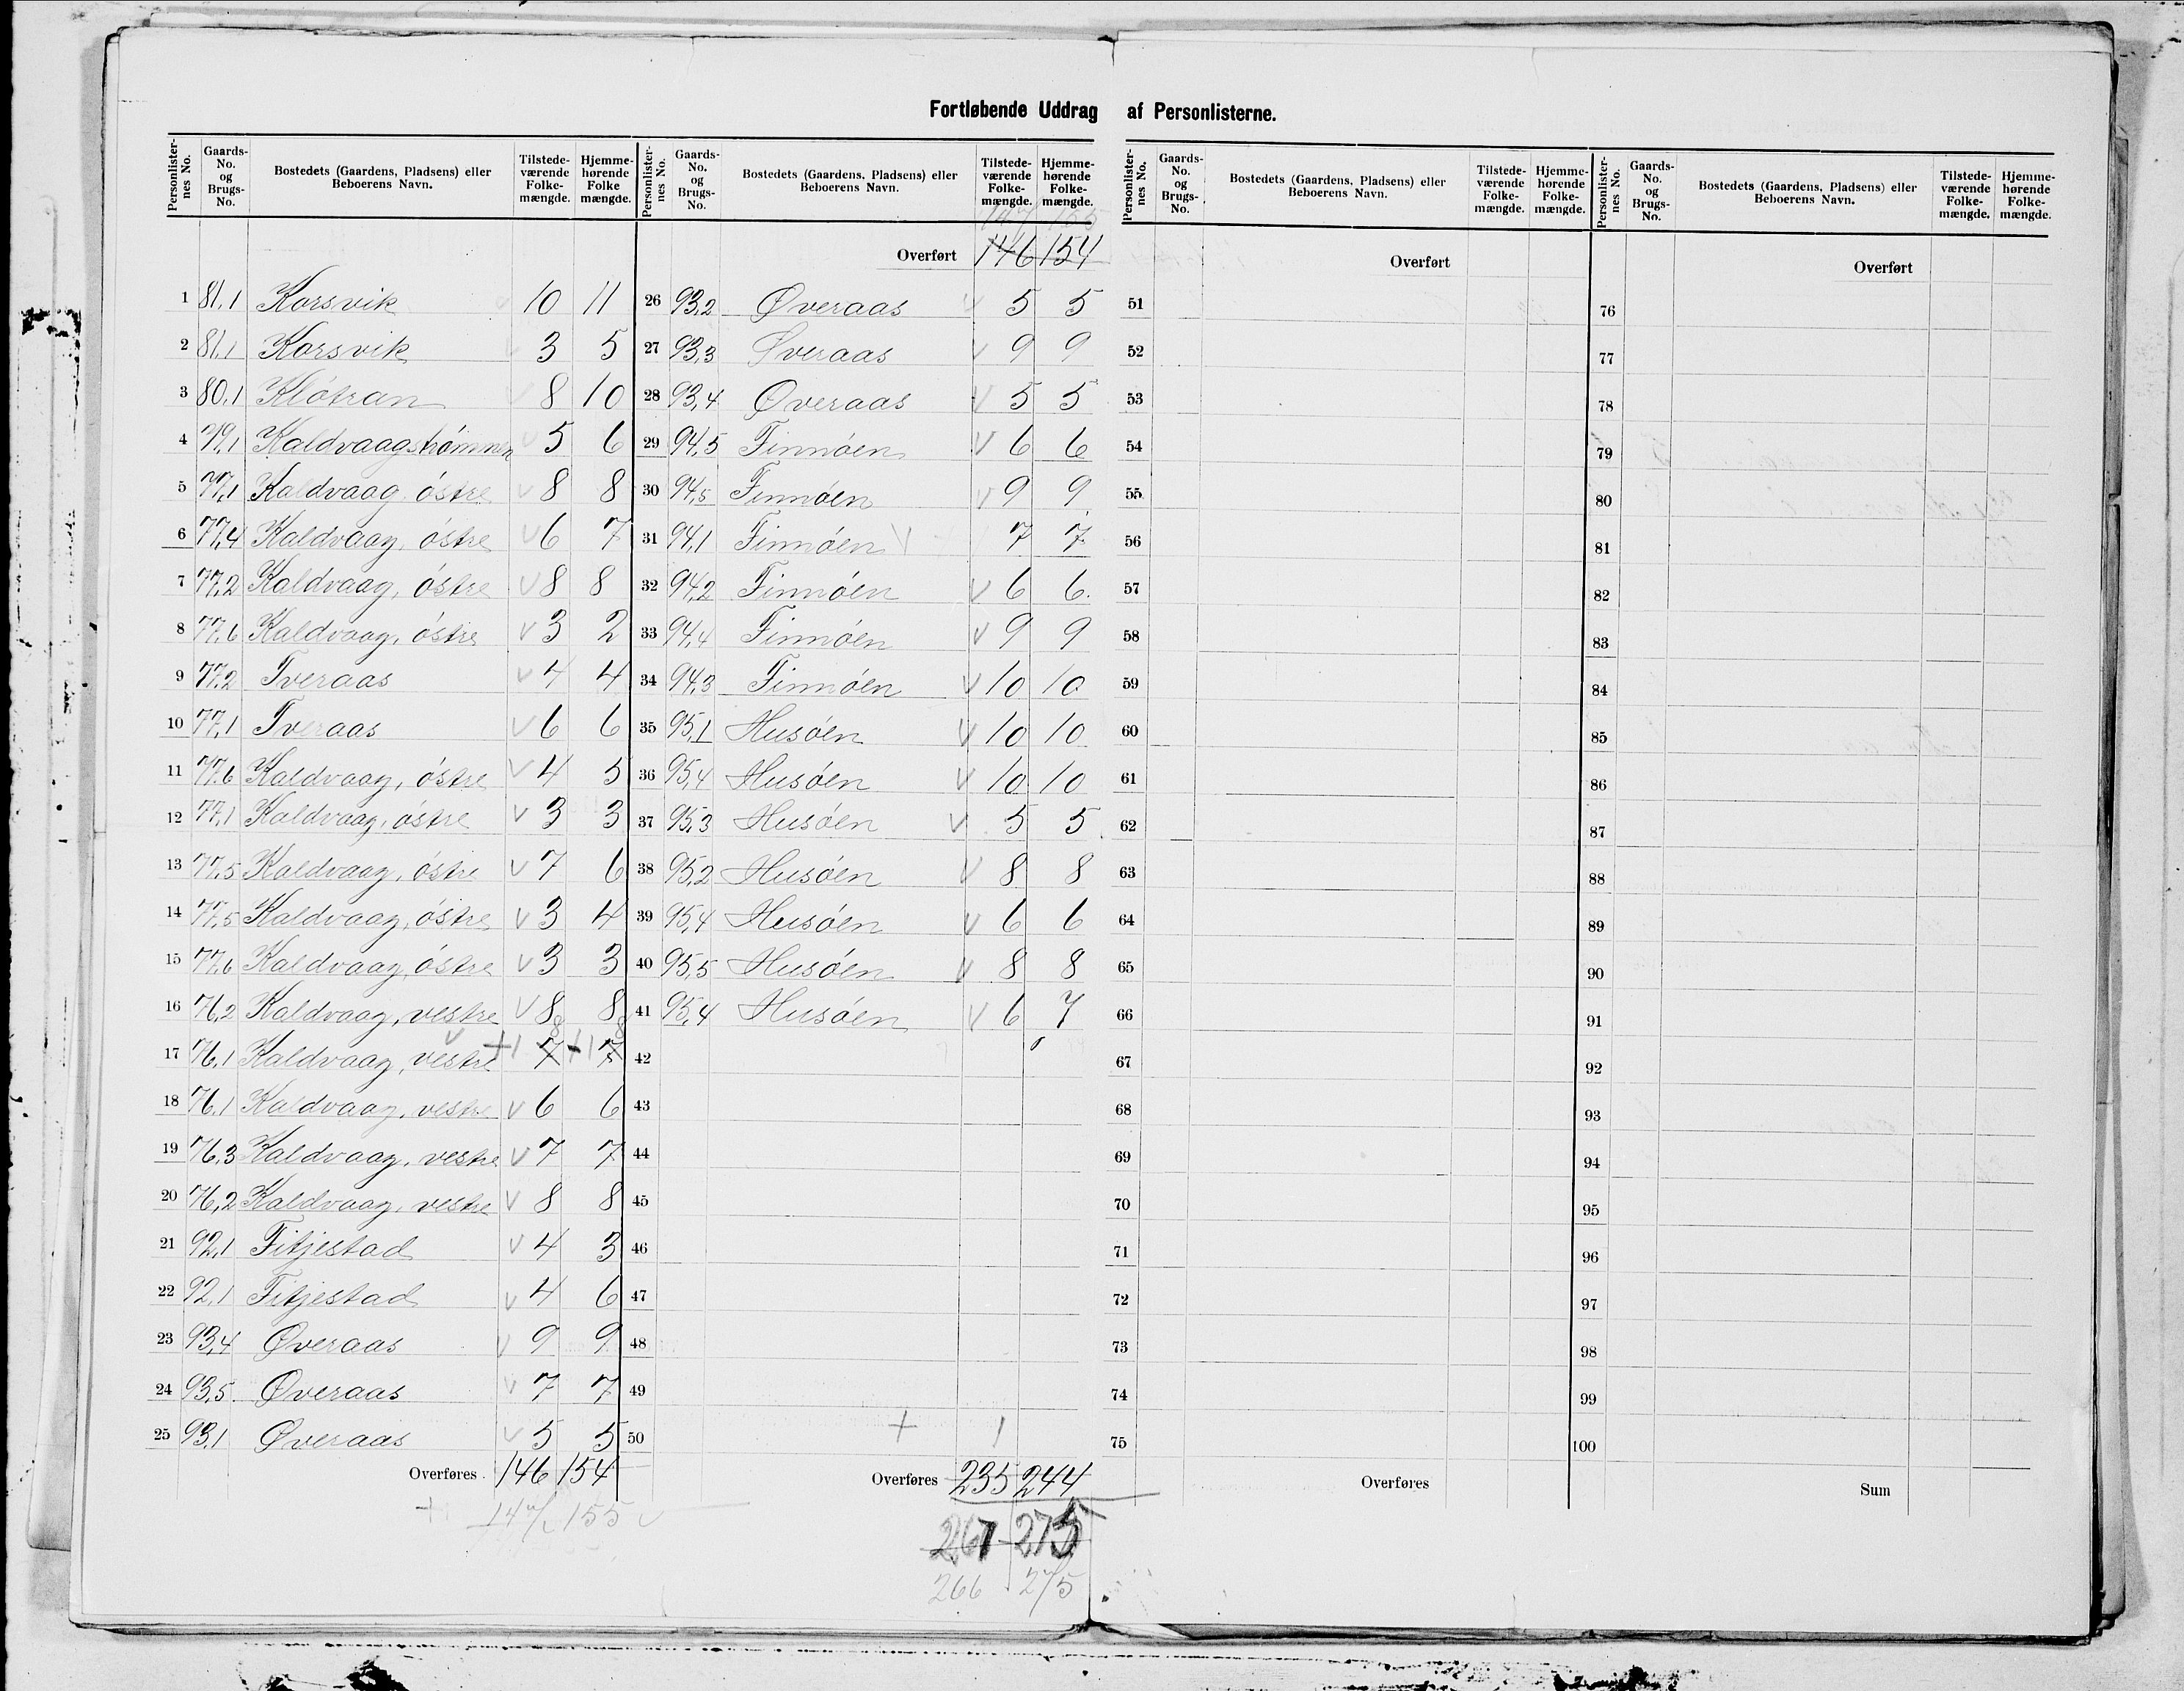 Fortløbende Uddrag af Personlisterne.
Personlister-nes No. Gaards-No. og Brugs-No. Bostedets (Gaardens, Pladsens) eller Beboerens Navn. Tilstede-værende Folke-mængde. Hjemme-hørende Folke mængde.
Overført 146 154
1 81,1 Korsvik 10 11
2 81,1 Korsvik 3 5
3 80,1 Klótran 8 10
4 79,1 Kaldvaagstrómmen 5 6
5 77,1 Kaldvaag, óstre 8 8
6 77,4 Kaldvaag, óstre 6 7
7 77,2 Kaldvaag, óstre 8 8
8 77,6 Kaldvaag, óstre 3 2
9 77,2 Tveraas 4 4
10 77,1 Tveraas 6 6
11 77,6 Kaldvaag, óstre 4 5
12 77,1 Kaldvaag, óstre 3 3
13 77,5 Kaldvaag, óstre 7 6
14 77,5 Kaldvaag, óstre 3 4
15 77,6 Kaldvaag, óstre 3 3
16 76,2 Kaldvaag, vestre 8 8
17 76,1 Kaldvaag, vestre +1 7 8 +1 7 8
18 76,1 Kaldvaag, vestre 6 6
19 76,3 Kaldvaag, vestre 7 7
20 76,2 Kaldvaag, vestre 8 8
21 92,1 Fitjestad 4 3
22 92,1 Fitjestad 4 6
23 93,4 Øveraas 9 9
24 93,5 Øveraas 7 7
25 93,1 Øveraas 5 5
Overføres 146 154
147 155
Personlister-nes No. Gaards-No. og Brugs-No. Bostedets (Gaardens, Pladsens) eller Beboerens Navn. Tilstede-værende Folke-mængde. Hjemme-hørende Folke-mængde.
147 155
26 93,2 Øveraas 5 5
27 93,3 Øveraas 9 9
28 93,4 Øveraas 5 5
29 94,5 Finnóen 6 6
30 94,5 Finnóen 9 9
31 94,1 Finnóen 7 7
32 94,2 Finnóen 6 6
33 94,4 Finnóen 9 9
34 94,3 Finnóen 10 10
35 95,1 Husóen 10 10
36 95,4 Husóen 10 10
37 95,3 Husóen 5 5
38 95,2 Husóen 8 8
39 95,4 Husóen 6 6
40 95,5 Husóen 8 8
41 95,4 Husóen 6 7
42
43
44
45
46
47
48
49
50 + 1
Overføres 235 244
267 275
266 275
Personlister-nes No. Gaards-No. og Brugs-No. Bostedets (Gaardens, Pladsens) eller Beboerens Navn. Tilstede-værende Folke-mængde. Hjemme-hørende Folke-mængde.
Overført
51
52
53
54
55
56
57
58
59
60
61
62
63
64
65
66
67
68
69
70
71
72
73
74
75
Overføres
Personlister-nes No. Gaards-No. og Brugs-No. Bostedets (Gaardens, Pladsens) eller Beboerens Navn. Tilstede-værende Folke-mængde. Hjemme-hørende Folke-mængde.
Overført
76
77
78
79
80
81
82
83
84
85
86
87
88
89
90
91
92
93
94
95
96
97
98
99
100
Sum